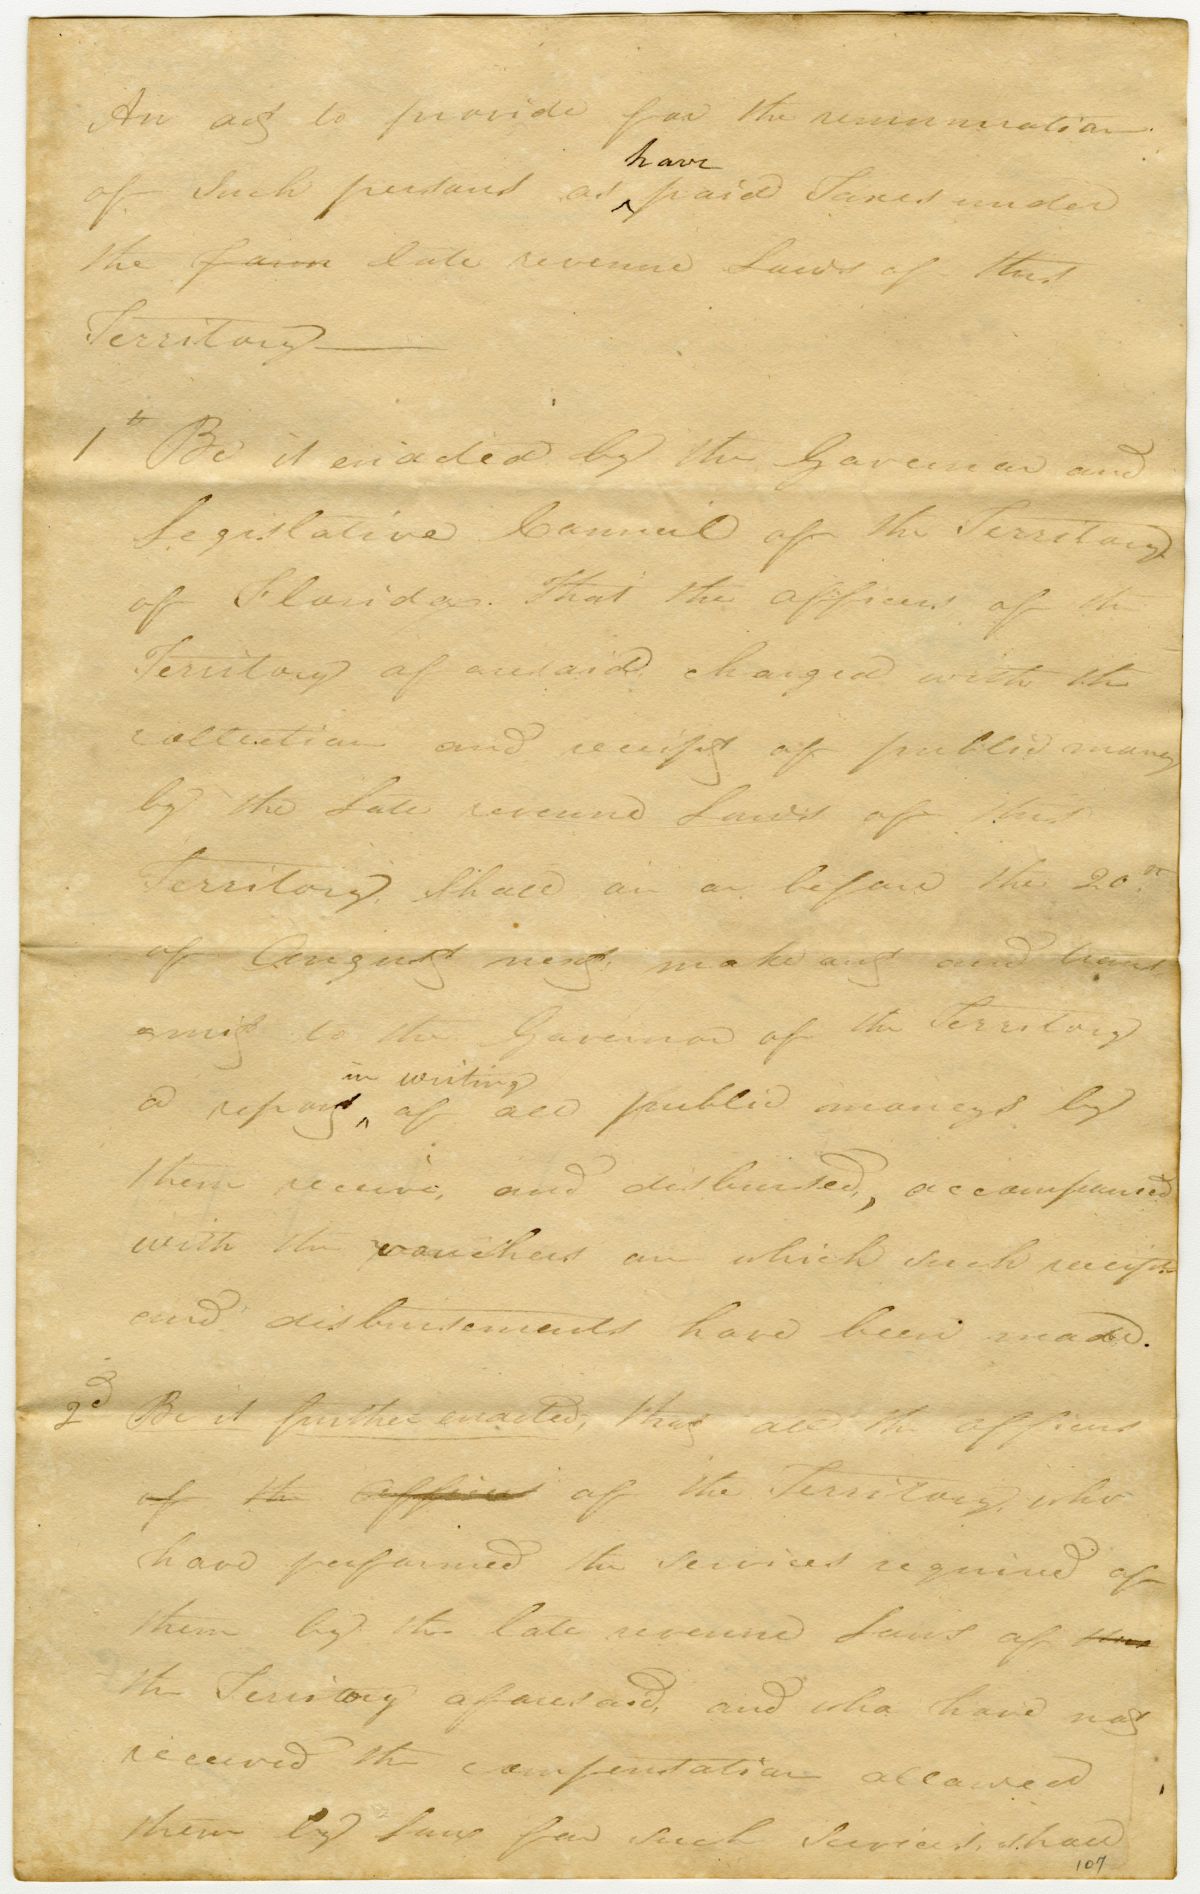 An act to provide for the remuneration
of such persons as ^ have paid Taxes under
the form late revenue Laws of this
Territory
1st Be it enacted by the Governor and
Legislative Council of the Territory
of Florida. That the officers of the
Territory aforesaid charged with the
collection and receipt of public money
by the late revenue Laws of this
Territory, Shall on or before the 20th
of August next, make out and trans
mit to the Governor of the Territory
a report, ^ in writing of all public moneys by
them receive, and disbursed, accompanied
with the vouchers on which such receipts
and disbursements have been made.
2d Be it further enacted, that all the officers
of the officers of the Territory, who
have performed the services required of
them by the late revenue Laws of this
the Territory aforesaid, and who have not
received the compensation allowed
them by Law for such Services, shall
107